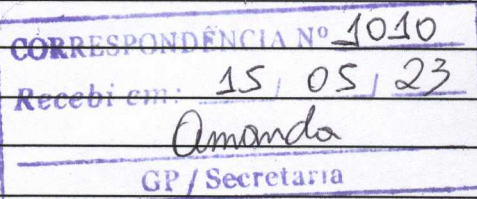 CORRESPONDÊNCIA Nº 1010
Recebi em: 15 / 05 / 23
Amanda
GP / Secretaria